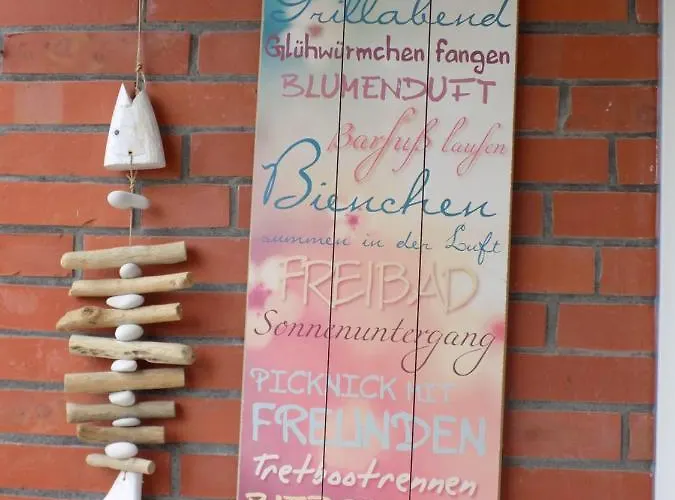 Grillabend
Glühwürmchen fangen
BLUMENDUFT
Barfuß laufen
Bienchen
summen in der Luft
FREIBAD
Sonnenuntergang
PICKNICK MIT
FREUNDEN
Tretbootrennen